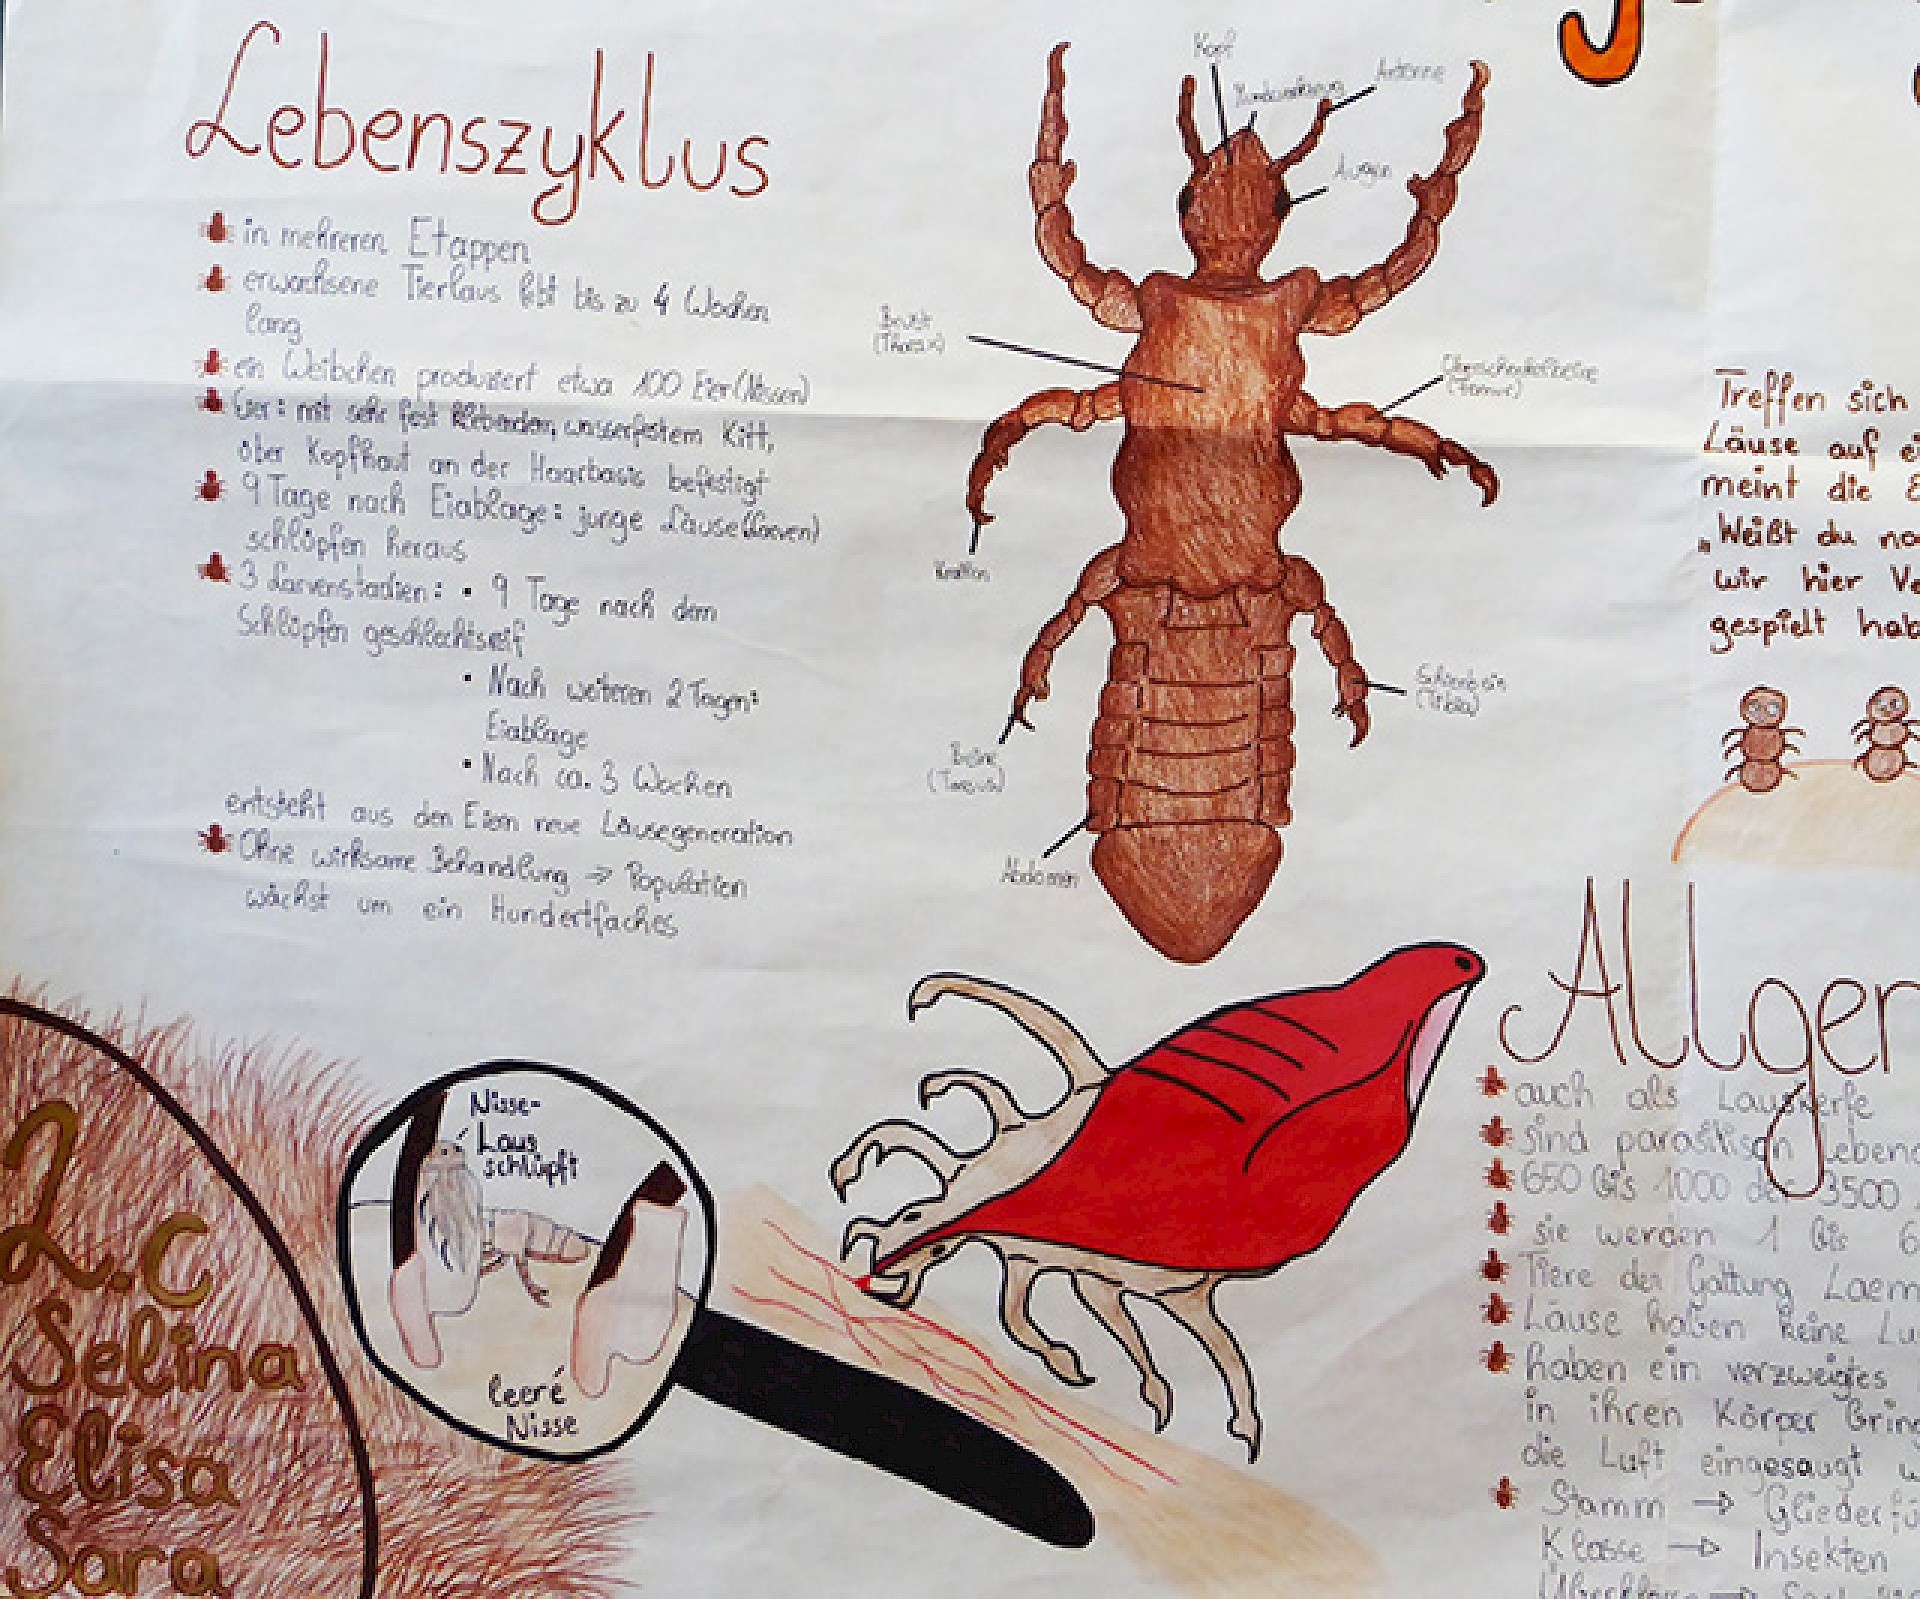 Lebenszyklus
in mehreren Etappen
erwachsene Tierlaus lebt bis zu 4 Wochen
lang
ein Weibchen produziert etwa 100 Eier (Nissen)
Eier: mit sehr fest klebendem, wasserfestem Kitt,
über Kopfhaut an der Haarbasis befestigt
9 Tage nach Eiablage: junge Läuse (Larven)
schlüpfen heraus
3 Larvenstadien: • 9 Tage nach dem
Schlüpfen geschlechtsreif
• Nach weiteren 2 Tagen:
Eiablage
• Nach ca. 3 Wochen
entsteht aus den Eiern neue Läusegeneration
Ohne wirksame Behandlung → Population
wächst um ein Hundertfaches
Kopf
Antenne
Augen
Brust
(Thorax)
(Femur)
Krallen
(Tibia)
Beine
(Tarsus)
Abdomen
Treffen sich
Läuse auf ei
meint die E
„Weißt du no
wir hier Ve
gespielt hab
Allgem
auch als Lauskerfe
sind parasitisch lebend
650 bis 1000 der 3500
sie werden 1 bis 6
Tiere der Gattung Laem
Läuse haben keine Lu
haben ein verzweigtes
in ihren Körper bring
die Luft eingesaugt w
Stamm → Gliederfü
Klasse → Insekten
Nisse-
Laus
schlüpft
leere
Nisse
2.c
Selina
Elisa
Sara